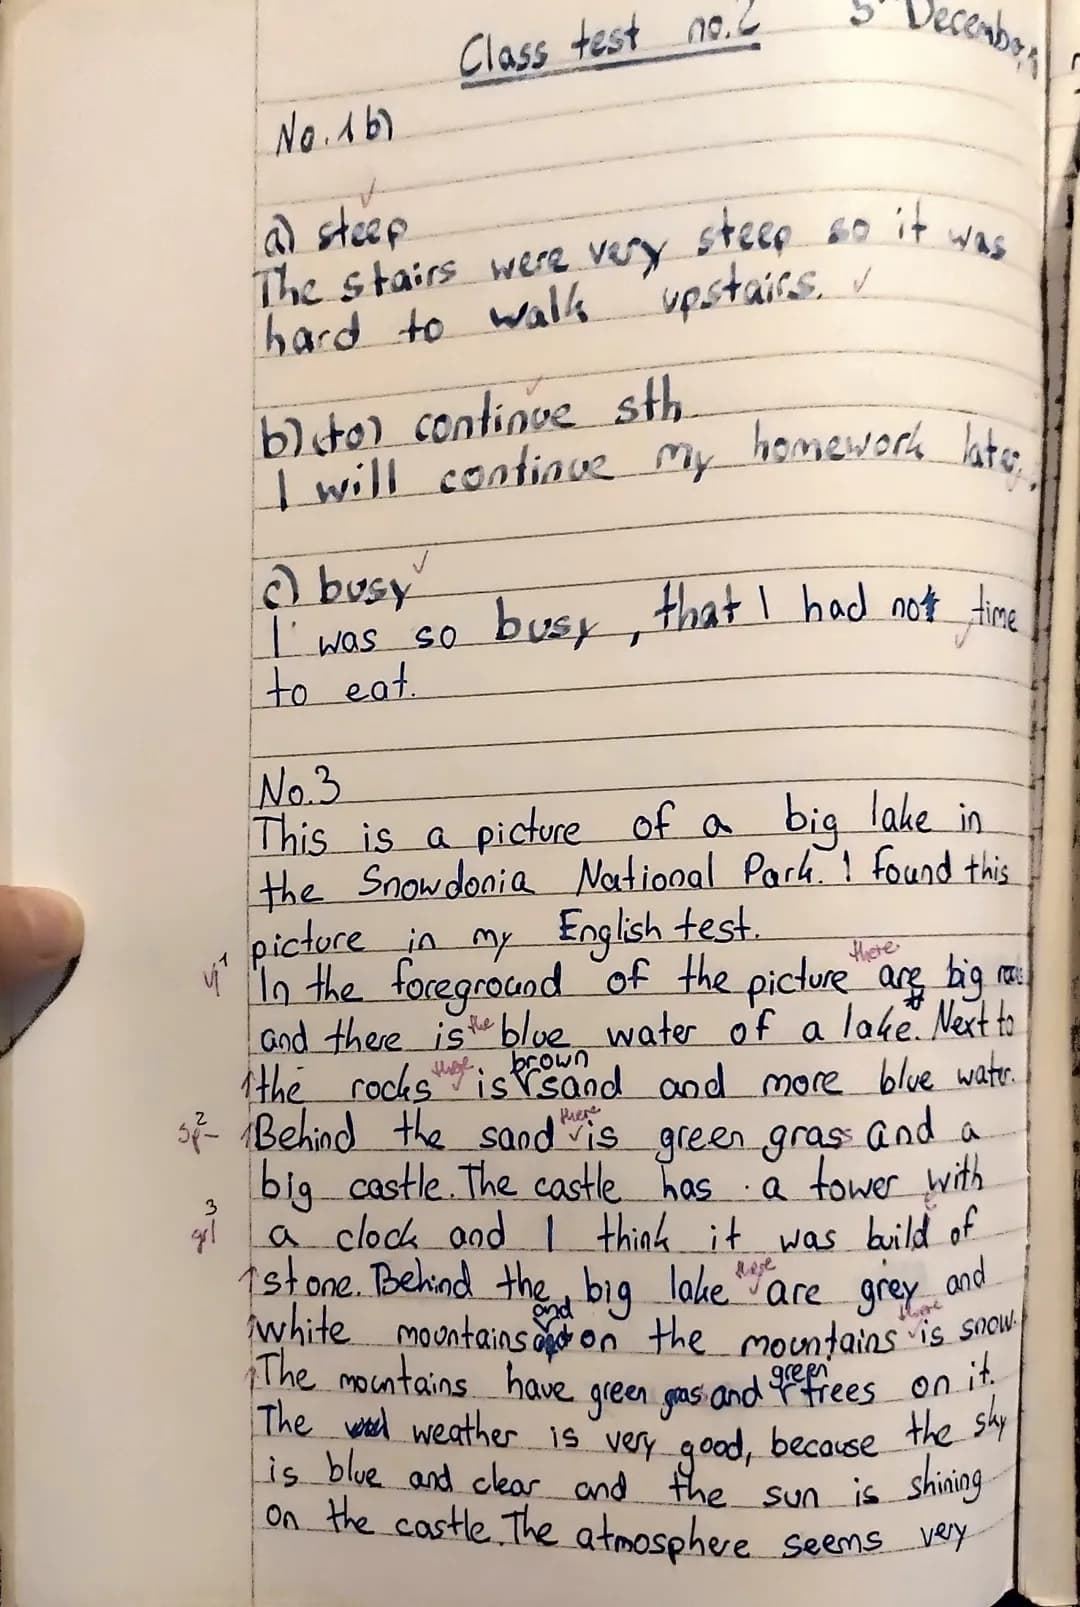 Class test no.2 5th December
No. 1b)
a) steep
The stairs were very steep so it was
hard to walk upstairs.
b) (to) continue sth.
I will continue my homework later.
c) busy
I was so busy, that I had not time
to eat.
No.3
This is a picture of a big lake in
the Snowdonia National Park. I found this
picture in my English test.
there
In the foreground of the picture are big
and there is the blue water of a lake. Next to
there brown
the rocks is sand and more blue water.
there
Sp 2 Behind the sand is green grass and a
big castle. The castle has a tower with
3 t
gr a clock and I think it was build of
there
stone. Behind the big lake are grey and
and there
white mountains on the mountains is snow.
green
The mountains have green gras and trees on it.
The weather is very good, because the sky
is blue and clear and the sun is shining
on the castle. The atmosphere seems very